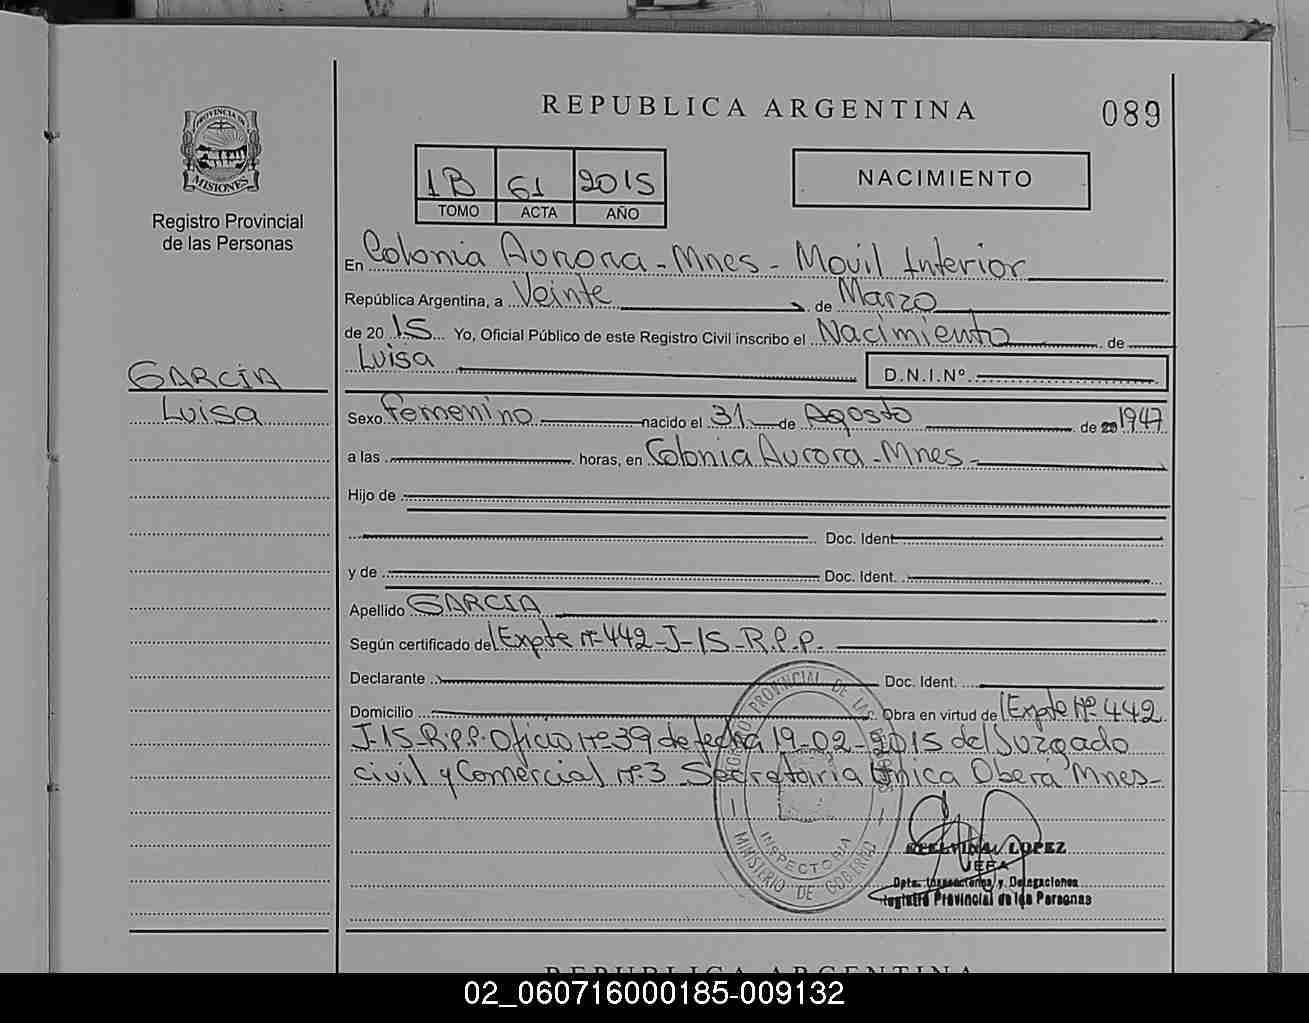 REPUBLICA ARGENTINA
089
PROVINCIA DE
MISIONES
Registro Provincial
de las Personas
1B 61 2015
TOMO ACTA AÑO
NACIMIENTO
En Colonia Aurora - Mnes - Movil Interior
República Argentina, a Veinte de Marzo
de 20 15 Yo, Oficial Público de este Registro Civil inscribo el Nacimiento de
Luisa D.N.I.Nº
GARCÍA
Luisa
Sexo Femenino nacido el 31 de Agosto de 20 1947
a las horas, en Colonia Aurora - Mnes -
Hijo de
Doc. Ident.
y de Doc. Ident.
Apellido GARCÍA
Según certificado del Expte nº 442-J-15-R.P.P.
Declarante Doc. Ident.
Domicilio Obra en virtud del Expte Nº 442
J-15-R.P.P. Oficio nº 39 de fecha 19-02-2015 del Juzgado
civil y Comercial nº 3 Secretaria Unica Oberá Mnes-
REGISTRO PROVINCIAL DE LAS PERSONAS
INSPECTORIA
MINISTERIO DE GOBIERNO
LOPEZ
JEFA
Dpto. Inspectoria y Delegaciones
Registro Provincial de las Personas
REPUBLICA ARGENTINA
02_060716000185-009132